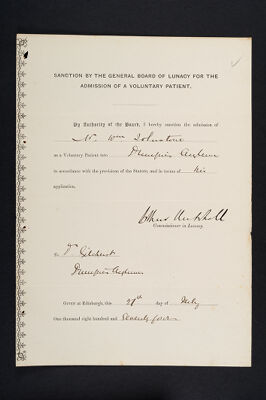 SANCTION BY THE GENERAL BOARD OF LUNACY FOR THE
ADMISSION OF A VOLUNTARY PATIENT.
By Authority of the Board, I hereby sanction the admission of
Mr. Wm Johnstone
as a Voluntary Patient into Dumfries Asylum
in accordance with the provision of the Statute, and in terms of his
application.
Commissioner in Lunacy.
To Dr Gilchrist
Dumfries Asylum
GIVEN at Edinburgh, this 29th day of May
One thousand eight hundred and Seventy four